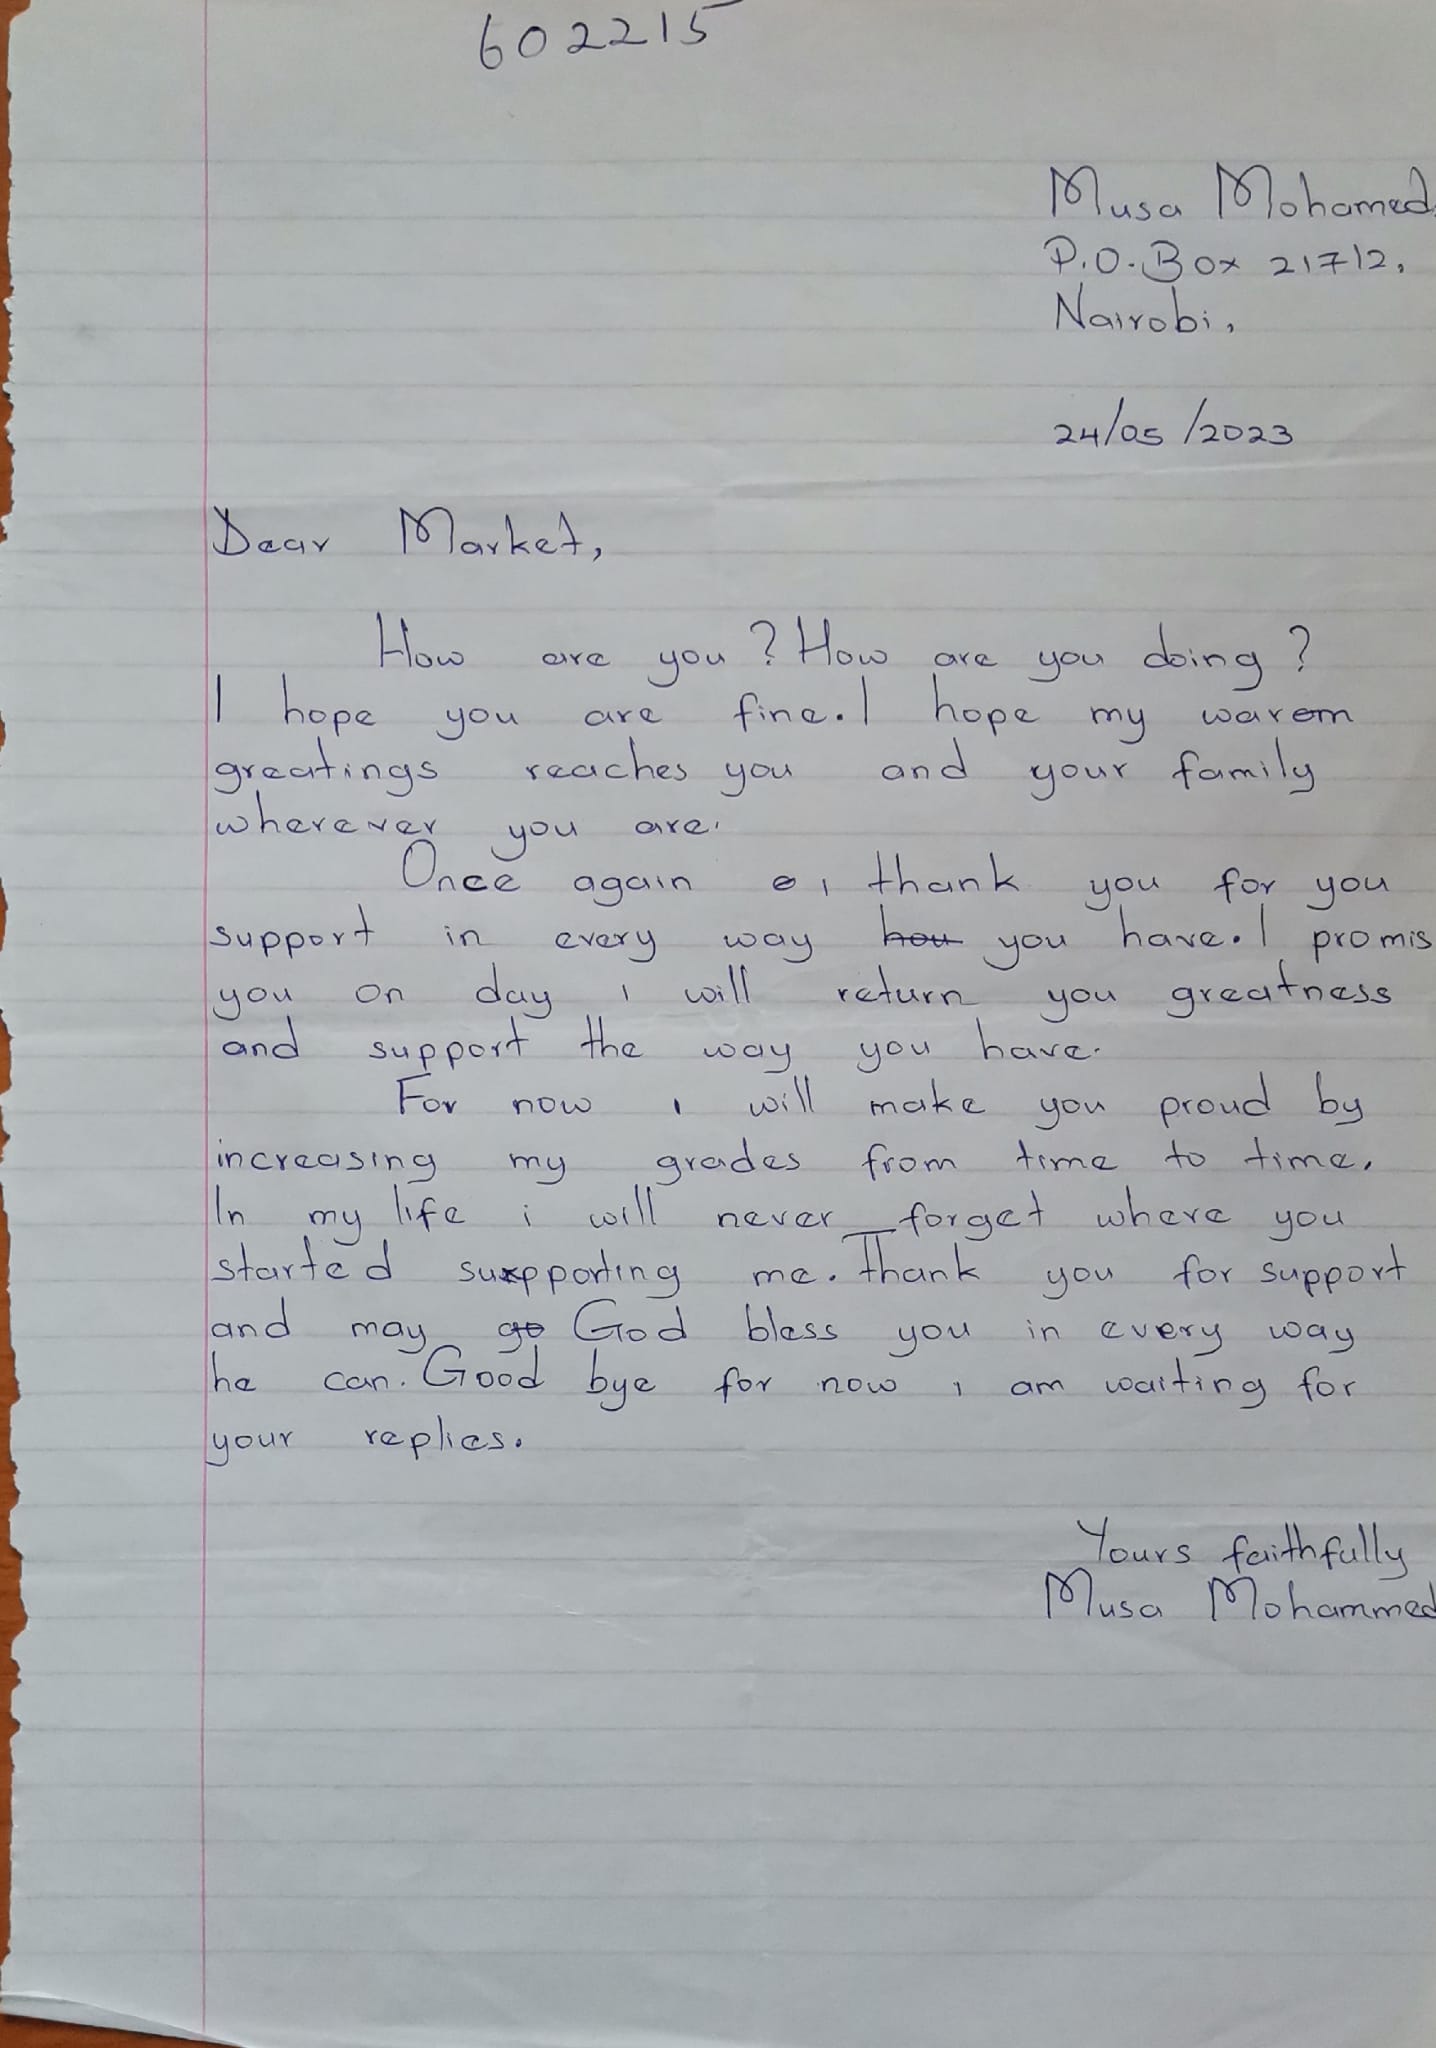 602215
Musa Mohamed
P.O. Box 21712,
Nairobi,
24/05/2023
Dear Market,
How are you? How are you doing?
I hope you are fine. I hope my warem
greatings reaches you and your family
wherever you are.
Once again i thank you for you
support in every way you have. I promis
you on day i will return you greatness
and support the way you have.
For now i will make you proud by
increasing my grades from time to time.
In my life i will never forget where you
started supporting me. Thank you for support
and may God bless you in every way
he can. Good bye for now i am waiting for
your replies.
Yours faithfully
Musa Mohammed